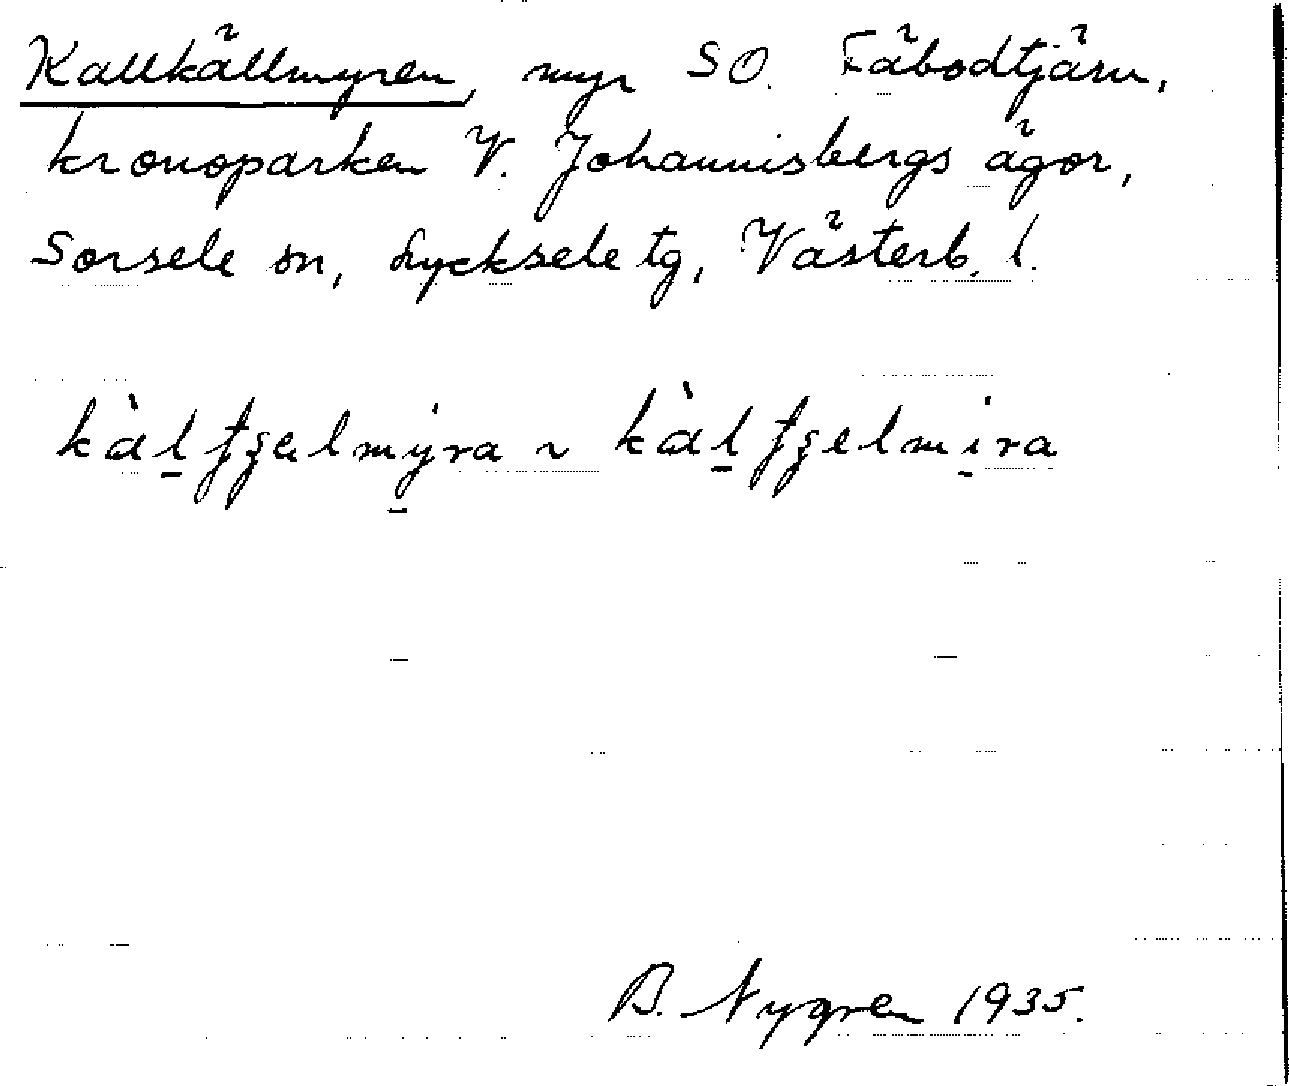 Kallkällmyren, myr SO. Fäbodtjärn,
kronoparken V. Johannisbergs ägor,
Sorsele sn, Lycksele tg, Västerb. l.
kàl̲fʒelmý̲ra ~ kàl̲fʒelmí̲ra
B. Nygren 1935.